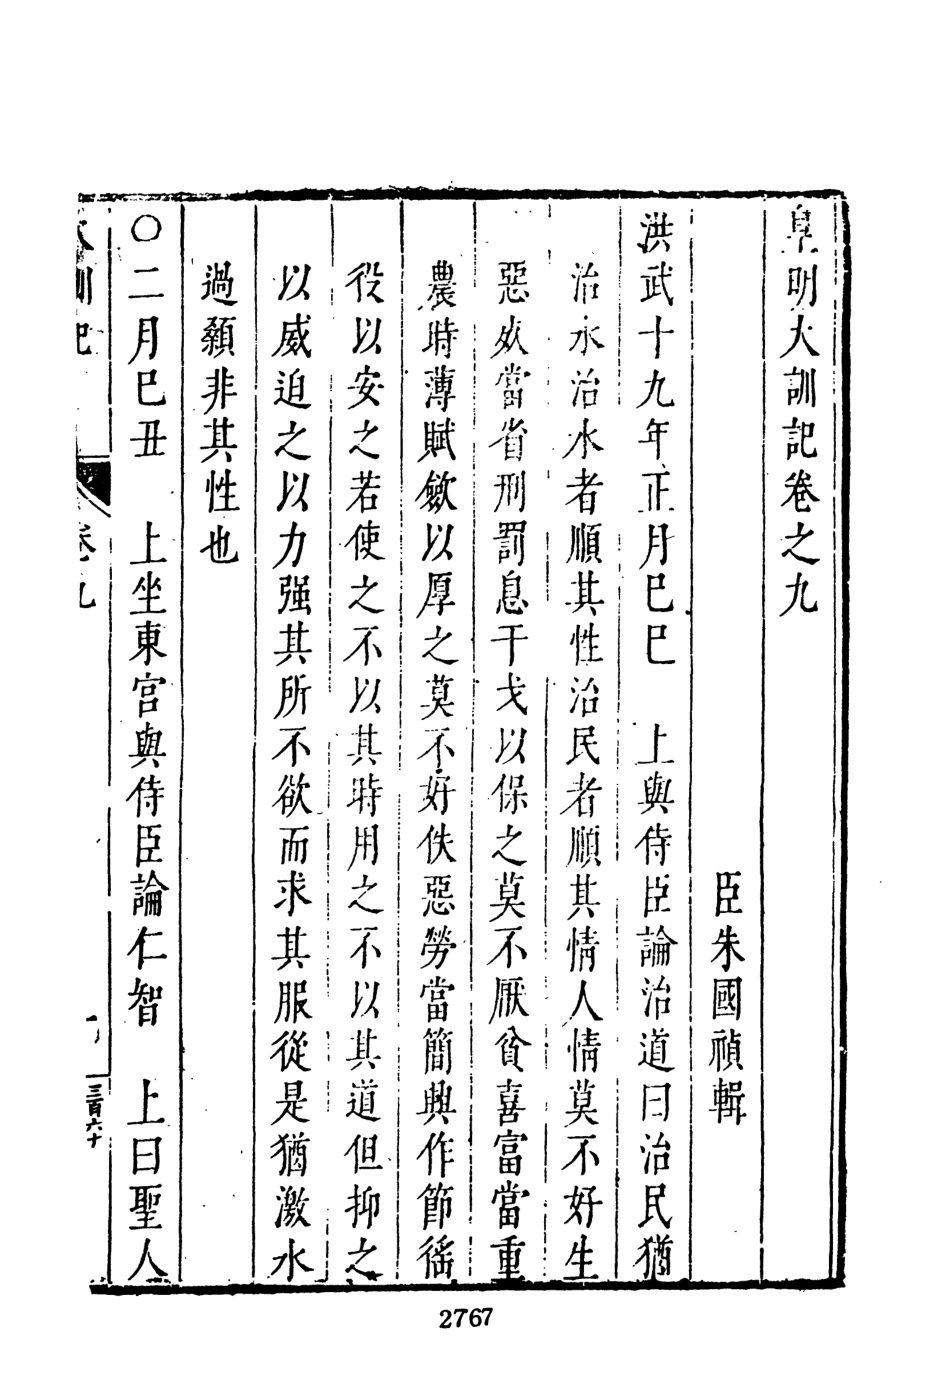 皇明大訓記卷之九
臣朱國禎輯
洪武十九年正月巳巳　上與侍臣論治道曰治民猶
治水治水者順其性治民者順其情人情莫不好生
惡死當省刑罰息干戈以保之莫不厭貧喜富當重
農時薄賦斂以厚之莫不好佚惡勞當簡興作節徭
役以安之若使之不以其時用之不以其道但抑之
以威迫之以力强其所不欲而求其服從是猶激水
過顙非其性也
○二月巳丑　上坐東宮與侍臣論仁智　上曰聖人
大訓記　卷九　一　三百六十
2767